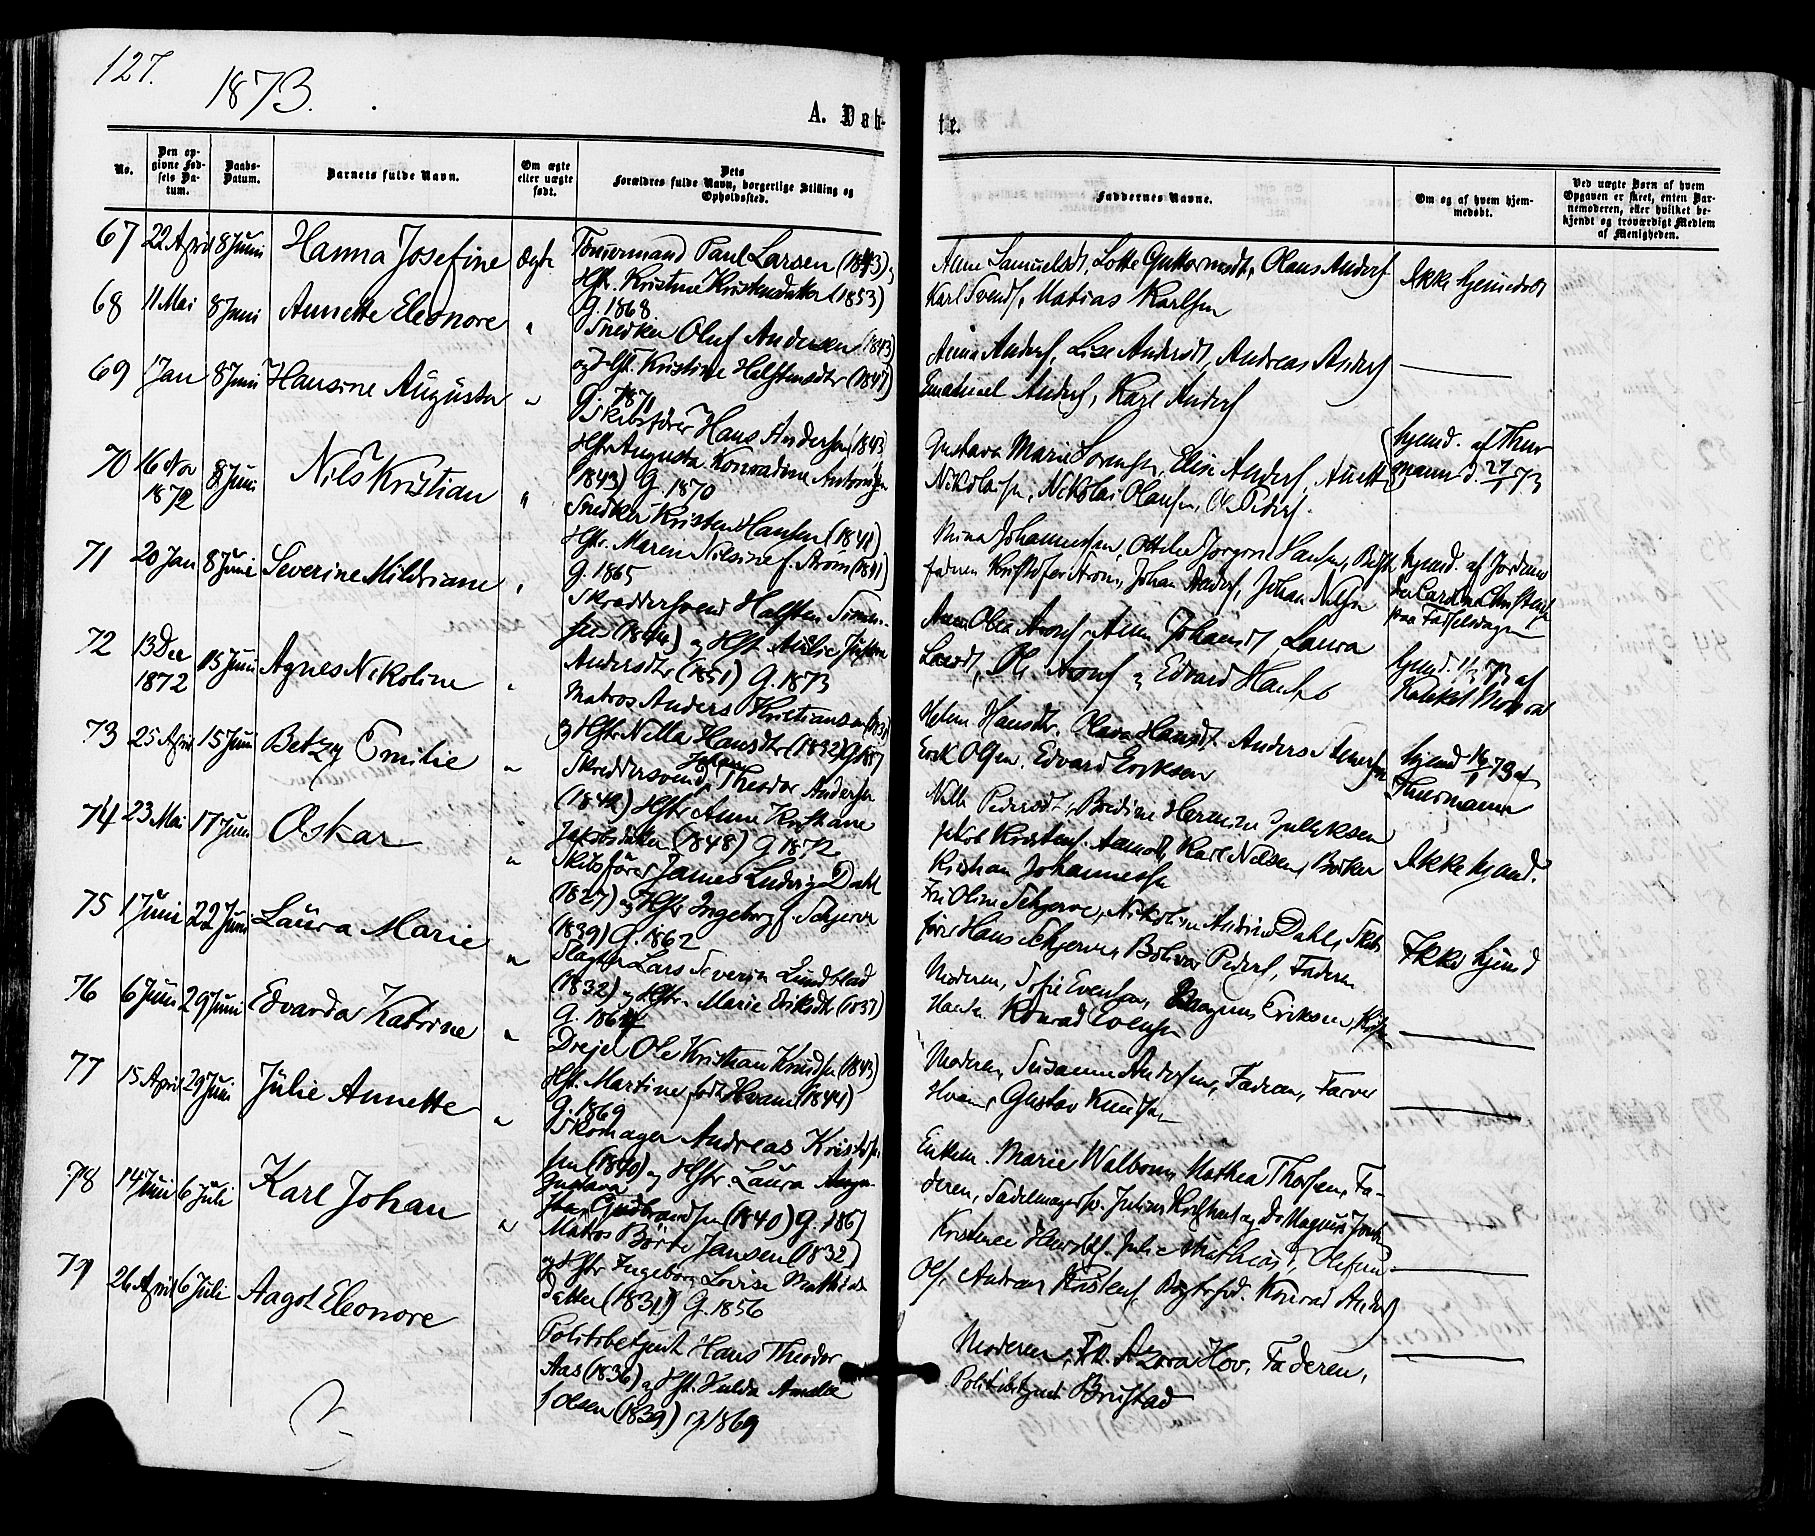 127.
1873.
A. Døb-
te.
No.
Den op-
givne Fød-
sels Da-
tum.
Daabs-
Datum.
Barnets fulde Navn.
Om ægte
eller uægte
født.
Dets
Forældres fulde Navn, borgerlige Stilling og
Opholdssted.
Faddernes Navne.
Om og af hvem hjem-
medøbt.
Ved uægte Børn af hvem
Opgaven er skeet, enten Bar-
nemoderen, eller hvilket be-
kjendt og troværdigt Medlem
af Menigheden.
67 22 April 8 Juni Hanna Josefine ægte
Paul Larsen (1843) og
Hstr. Kristine Kristensdatter (1853)
G. 1868
Anne Samuelsdt, Lotte Guttormsdt, Olaus Andersf
Karl Svends, Matias Karlsen
Ikke hjemmedøbt
68 11 Mai 8 Juni Annette Eleonore "
Snedker Oluf Andersen (1843)
og Hst. Kristine Halfstensdtr (1847)
G. 1871
Anna Andersf, Lise Andersdt, Andreas Andersf
Emanuel Andersf, Karl Andersf
69 1 Jan 8 Juni Hansine Augusta "
Skibsfører Hans Andersen (1843)
Hstr Augusta Konradine Antonisen
(1843) G. 1870
Gustava Marie Sørensen, Elise Andersf, Anette
Nikolaisen, Nikolai Olausen, Ole Pedersf.
hjemd. af Thur
mann d. 27/1 73
70 16 Nov
1872 8 Juni Nils Kristian "
Snedker Kristen Hansen (1841)
Hstr. Maren Nilsine f. Strøm (1841)
G. 1865
Mina Johannessen, Ottilie Jørgine Hansen,
faderen Kristofer Strøm, Johan Andersf, Johan Nilsen
hjemd. af Jordemo
der Cardine Christensen
paa Fødselsdagen
71 20 Jan 8 Juni Severine Mildriane "
Skreddersvend Halfsten Simon-
sen (1844) og Hst. Amalie
Andersdtr (1851) G. 1873
Anne Johansdt, Laura
Larsdt, Ole og Edvard Hansen
hjemd. 1/1 73 af
72 13 Dec
1872 15 Juni Agnes Nikoline "
Matros Anders Kristiansen
og Hstr Nella Hansdtr (1832)
Helene Hansdtr. Olava Hansdt Anders
Erik Olsen. Edvard Eriksen
hjemd 16/1 73 af
Thurmann
73 25 April 15 Juni Betzy Emilie "
Skreddersvend Johan Theodor Andersen
(1842) Hstr Anne Kristiane
Jakobsdatter (1848) G. 1872
Nille Pedersdt, Bredine Hermine Gulliksen
Jakob Kristensf. Karl Nilsen,
Kristian Johannessen
Ikke hjemd.
74 23 Mai 17 Juni Oskar "
Skibsfører James Ludvig Dahl
(1827) og Hstr Ingeborg f. Schjerve
(1839) G. 1862
Frk Oline Schjerve, Nikoline Andrine Dahl, Skibs
fører Hans Schjerve, Bolivar Pedersf, Faderen
Ikke hjemd
75 1 Juni 22 Juni Laura Marie "
Slagter Lars Severin Lundblad
(1832) og Hstr. Marie Eriksdtr (1837)
G. 1864
Moderen, Sofie Evensen, Magnus Eriksen,
Konrad Evensen
76 6 Juni 29 Juni Edvarda Katrine "
Drejer Ole Kristian Knudsen (1843)
Hst. Martine født Hvam (1844)
G. 1869
Moderen, Susanne Andersen, Faderen, Farver
Hvam, Gustav Knudsen
77 15 April 29 Juni Julie Annette "
Skomager Andreas Kristof
sen (1840) og Hstr. Laura
Gustava Gudbrandsen (1840) G. 1867
Enkem. Marie Walbom, Mathea Thorsen, Fa-
deren, Sadelmagersv. Julius og do Magnus
78 14 Juni 6 Juli Karl Johan "
Matros Børre Jansen (1832)
og Hstr Ingeborg Lovise Mathias
datter (1831) G. 1856
Kristence Julie Mathiasdt,
Ols, Andreas Konrad Andersf
79 26 April 6 Juli Aagot Eleonore
Politibetjent Hans Theodor
Aas (1836) og Hst. Hulda Amalie
f Olsen (1839) G 1869
Moderen, Frk. Azora Hov, Faderen,
Politibetjent Brustad